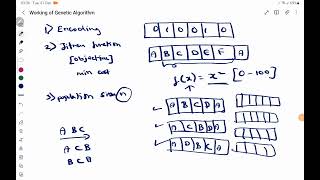 Working of Genetic Algorithm
1) Encoding
0 1 0 0 1 0
2) Fitness function
[objective]
min cost
A B C D E F A
f(x) = x² - [0-100]
3) population size (n)
A B C
A C B
B C B
A B C D A
A C B D A
A D B C A